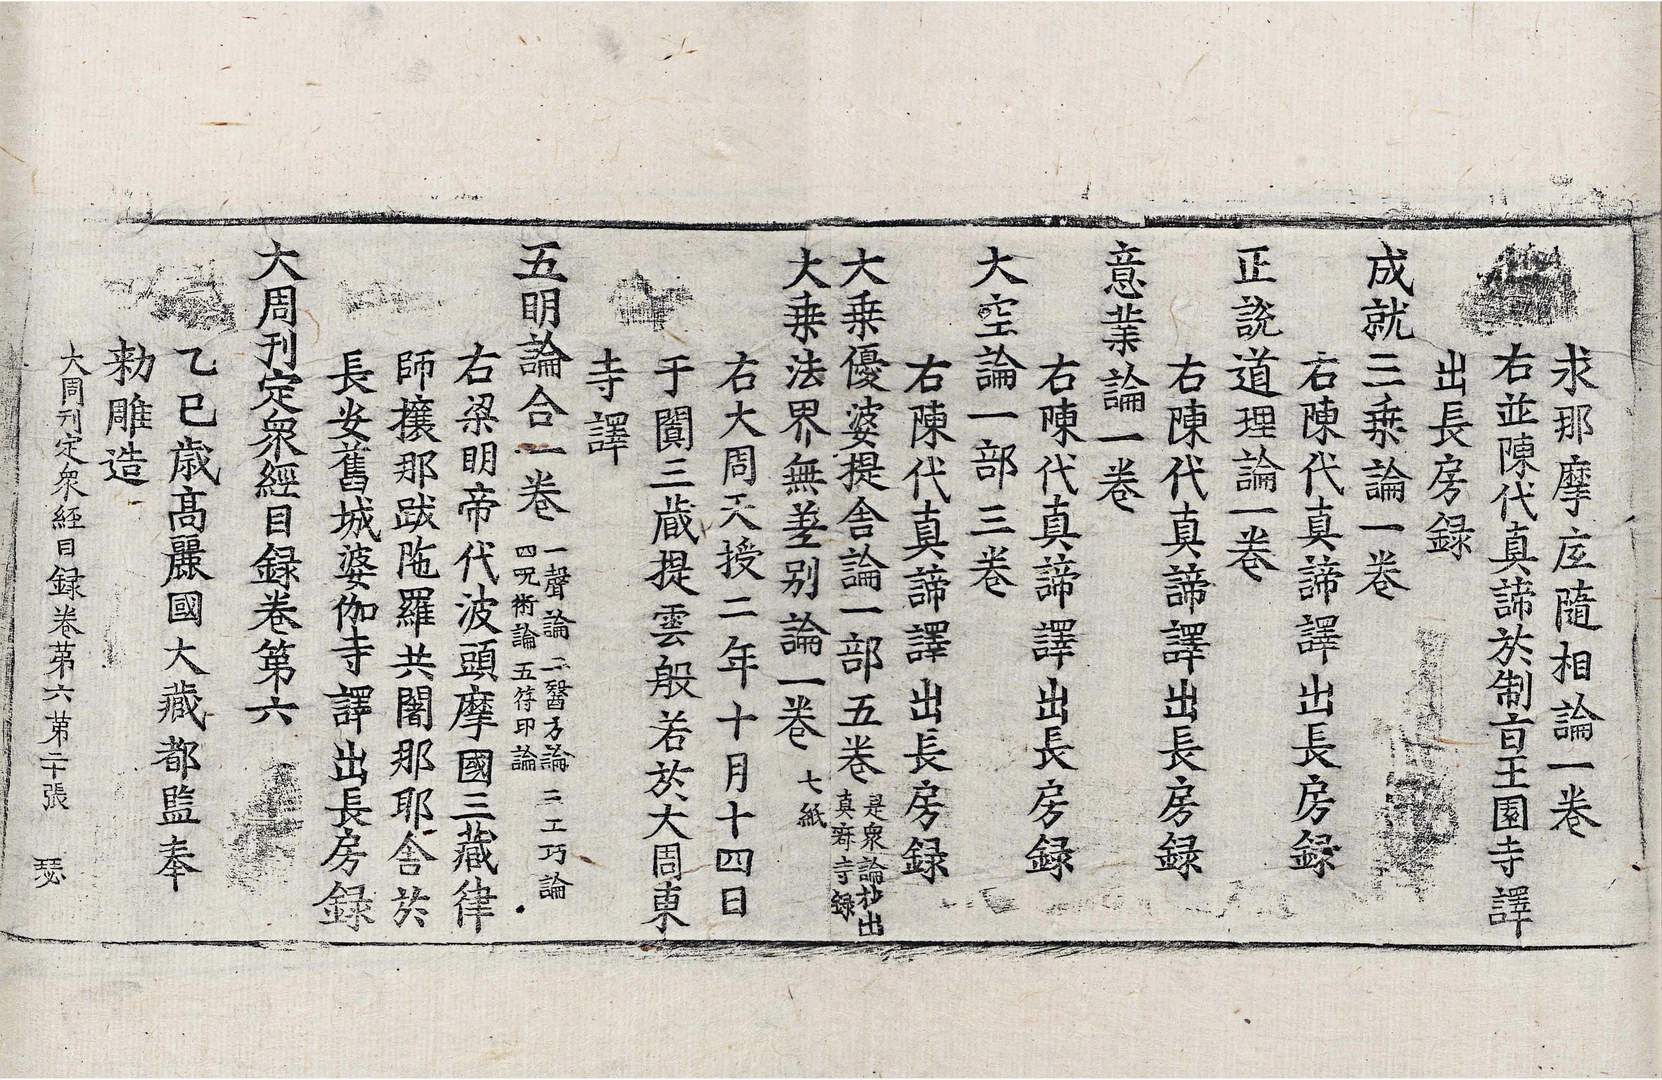 求那摩底隨相論一卷
右並陳代真諦於制㫖王園寺譯
出長房録
成就三乗論一卷
右陳代真諦譯出長房録
正說道理論一卷
右陳代真諦譯出長房録
意業論一卷
右陳代真諦譯出長房録
大空論一部三卷
右陳代真諦譯出長房録
大乗優婆提舍論一部五卷 是衆論抄出
真寂寺録
大乗法界無差别論一卷 七紙
右大周天授二年十月十四日
于闐三蔵提雲般若於大周東
寺譯
五明論合一卷 一聲論 二醫方論 三工巧論
四呪術論 五符印論
右梁明帝代波頭摩國三藏律
師攘那跋陁羅共闍那耶舍於
長安舊城婆伽寺譯出長房録
大周刊定衆經目録卷第六
乙巳歳髙麗國大藏都監奉
勑雕造
大周刊定衆經目録卷第六 第二十張 瑟